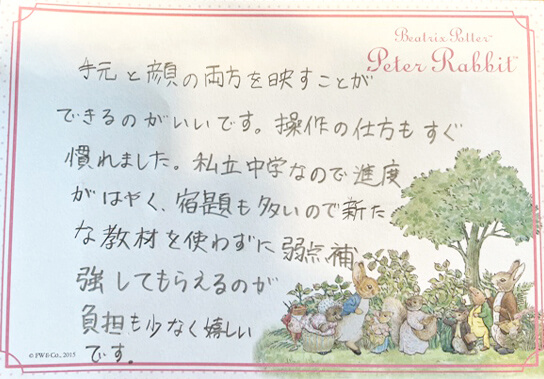 Beatrix Potter™
Peter Rabbit™
手元と顔の両方を映すことが
できるのがいいです。操作の仕方もすぐ
慣れました。私立中学なので進度
がはやく、宿題も多いので新た
な教材を使わずに弱点補
強してもらえるのが
負担も少なく嬉しい
です。
© FW & Co., 2015